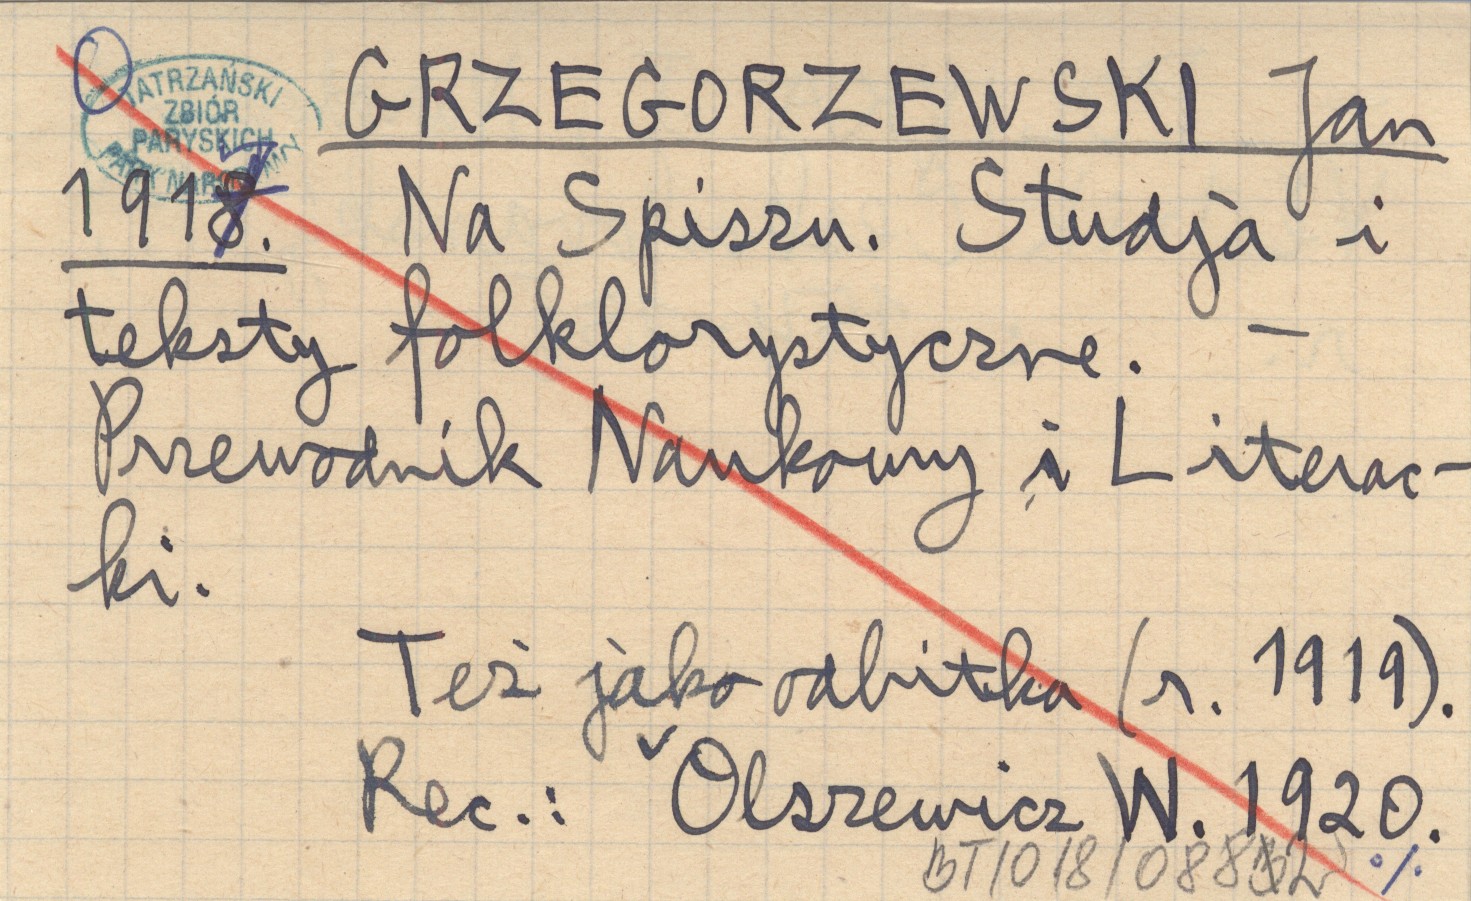 TATRZAŃSKI
ZBIÓR
PARYSKICH
GRZEGORZEWSKI Jan
1917. Na Spiszu. Studja i
teksty folklorystyczne. —
Przewodnik Naukowy i Literac-
ki.
Też jako odbitka (r. 1919).
Rec.: Olszewicz W. 1920.